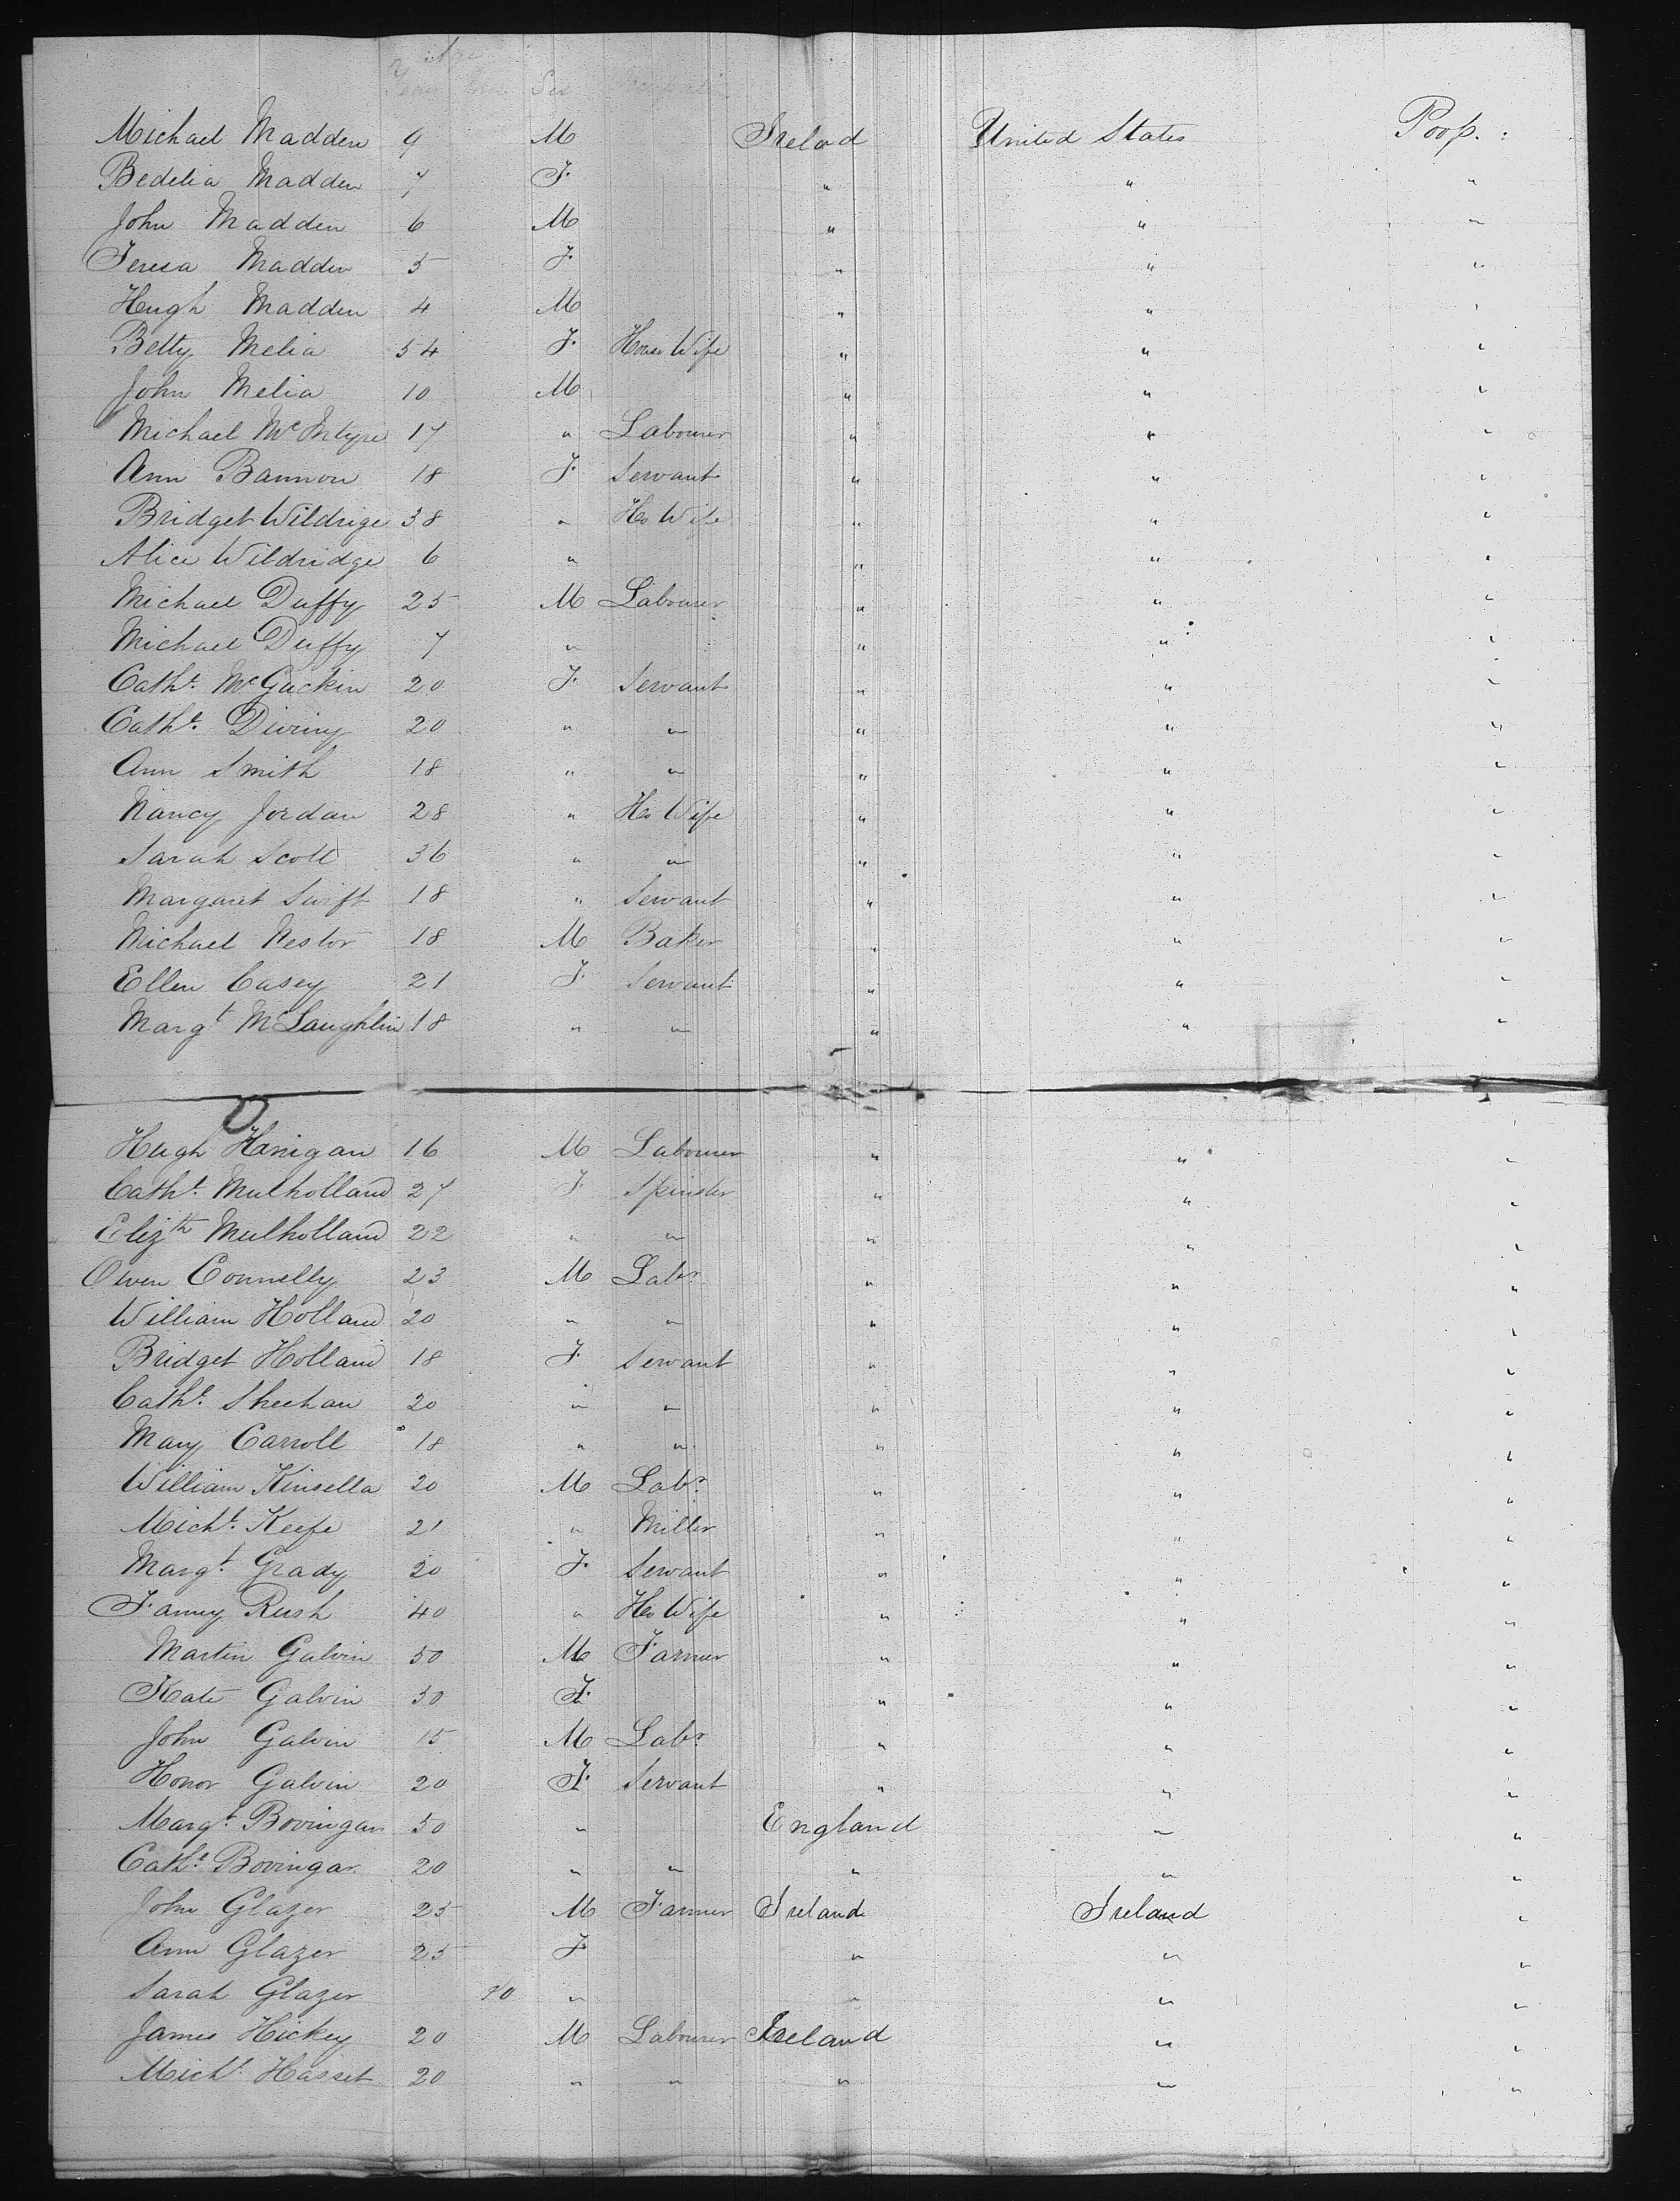 Age
Years Sex Occupation
Michael Madden 9 M Irelad United States Poop.
Bedelia Madden 7 F. " " "
John Madden 6 M " " "
Teresa Madden 5 F. " " "
Hugh Madden 4 M " " "
Betty Melia 54 F. House Wife " " "
John Melia 10 M " " "
Michael McIntyre 17 " Labourer " " "
Ann Bannon 18 F. Servant " " "
Bridget Wildrige 38 " Ho Wife " " "
Alice Wildridge 6 " " " "
Michael Duffy 25 M Labourer " " "
Michael Duffy 7 " " " "
Catht. McGuckin 20 F. Servant " " "
Catht. Diviny 20 " " " " "
Ann Smith 18 " " " " "
Nancy Jordan 28 " Ho Wife " " "
Sarah Scott 36 " " " " "
Margaret Swift 18 " Servant " " "
Michael Nestor 18 M Baker " " "
Ellen Casey 21 F. Servant " " "
Margt McLaughlin 18 " " " " "
Hugh Hanigan 16 M Labourer " " "
Catht. Mulholland 27 F. Spinster " " "
Elizth Mulholland 22 " " " " "
Owen Connelly 23 M Labr. " " "
William Holland 20 " " " " "
Bridget Holland 18 F. Servant " " "
Catht. Sheehan 20 " " " " "
Mary Carroll 18 " " " " "
William Kinsella 20 M Labr. " " "
Micht. Keefe 21 " Miller " " "
Margt. Grady 20 F. Servant " " "
Fanny Rush 40 " Ho Wife " " "
Martin Galvin 50 M Farmer " " "
Kate Galvin 50 F. " " "
John Galvin 15 M Labr. " " "
Honor Galvin 20 F. Servant " " "
Margt. Bovingan 50 " England " "
Catht. Bovingan 20 " " " " "
John Glazer 25 M Farmer Ireland Ireland "
Ann Glazer 25 F. " " "
Sarah Glazer 10 " " " "
James Hickey 20 M Labourer Ireland " "
Micht. Hasset 20 " " " " "